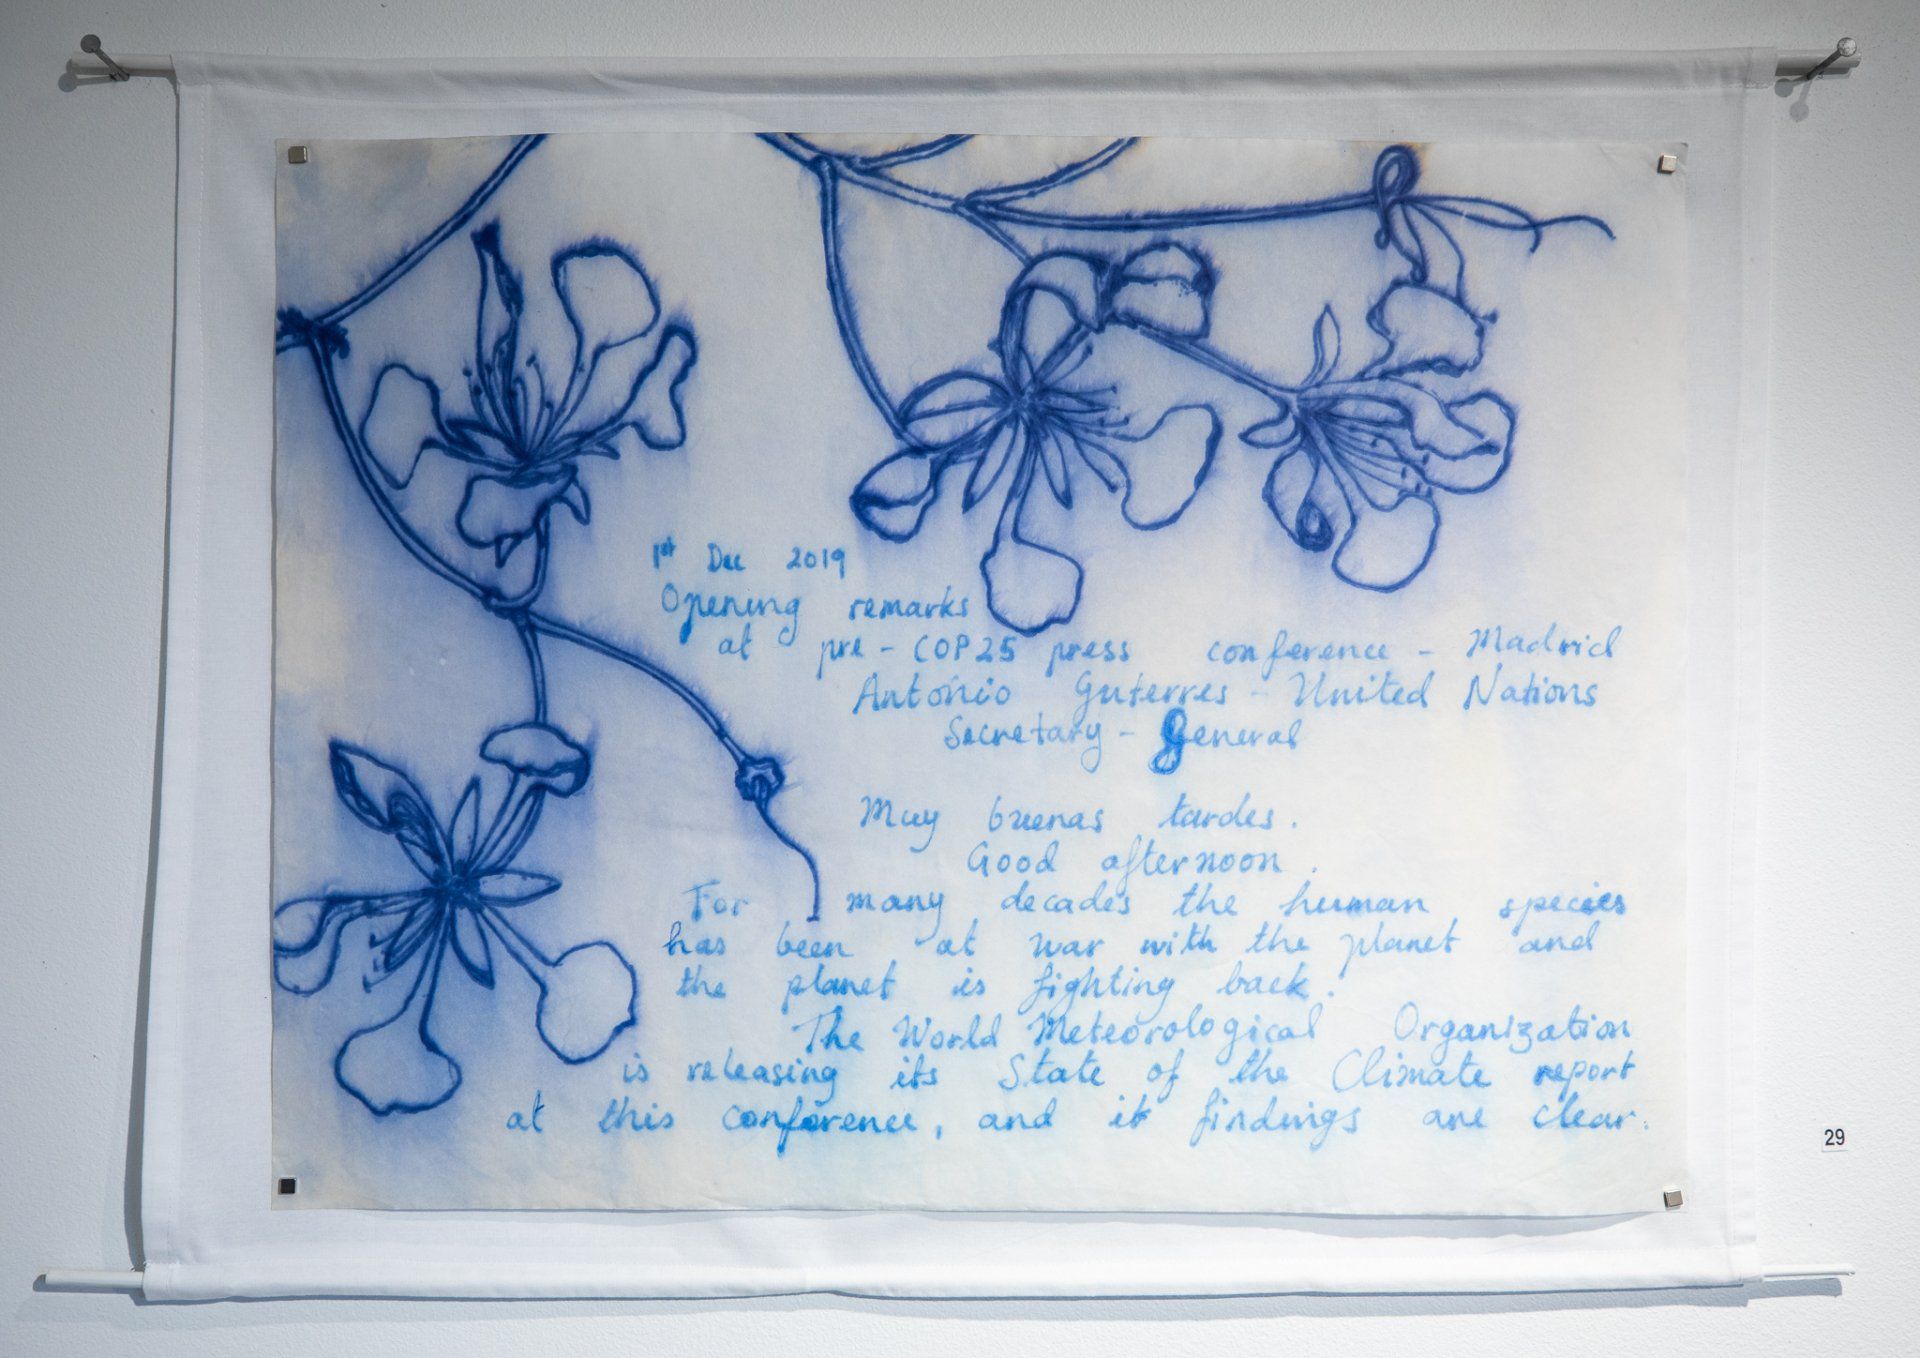 1st Dec 2019
Opening remarks
at pre - COP25 press conference - Madrid
António Guterres - United Nations
Secretary - General
Muy buenas tardes.
Good afternoon.
For many decades the human species
has been at war with the planet and
the planet is fighting back.
The World Meteorological Organization
is releasing its State of the Climate report
at this conference, and it findings are clear.
29